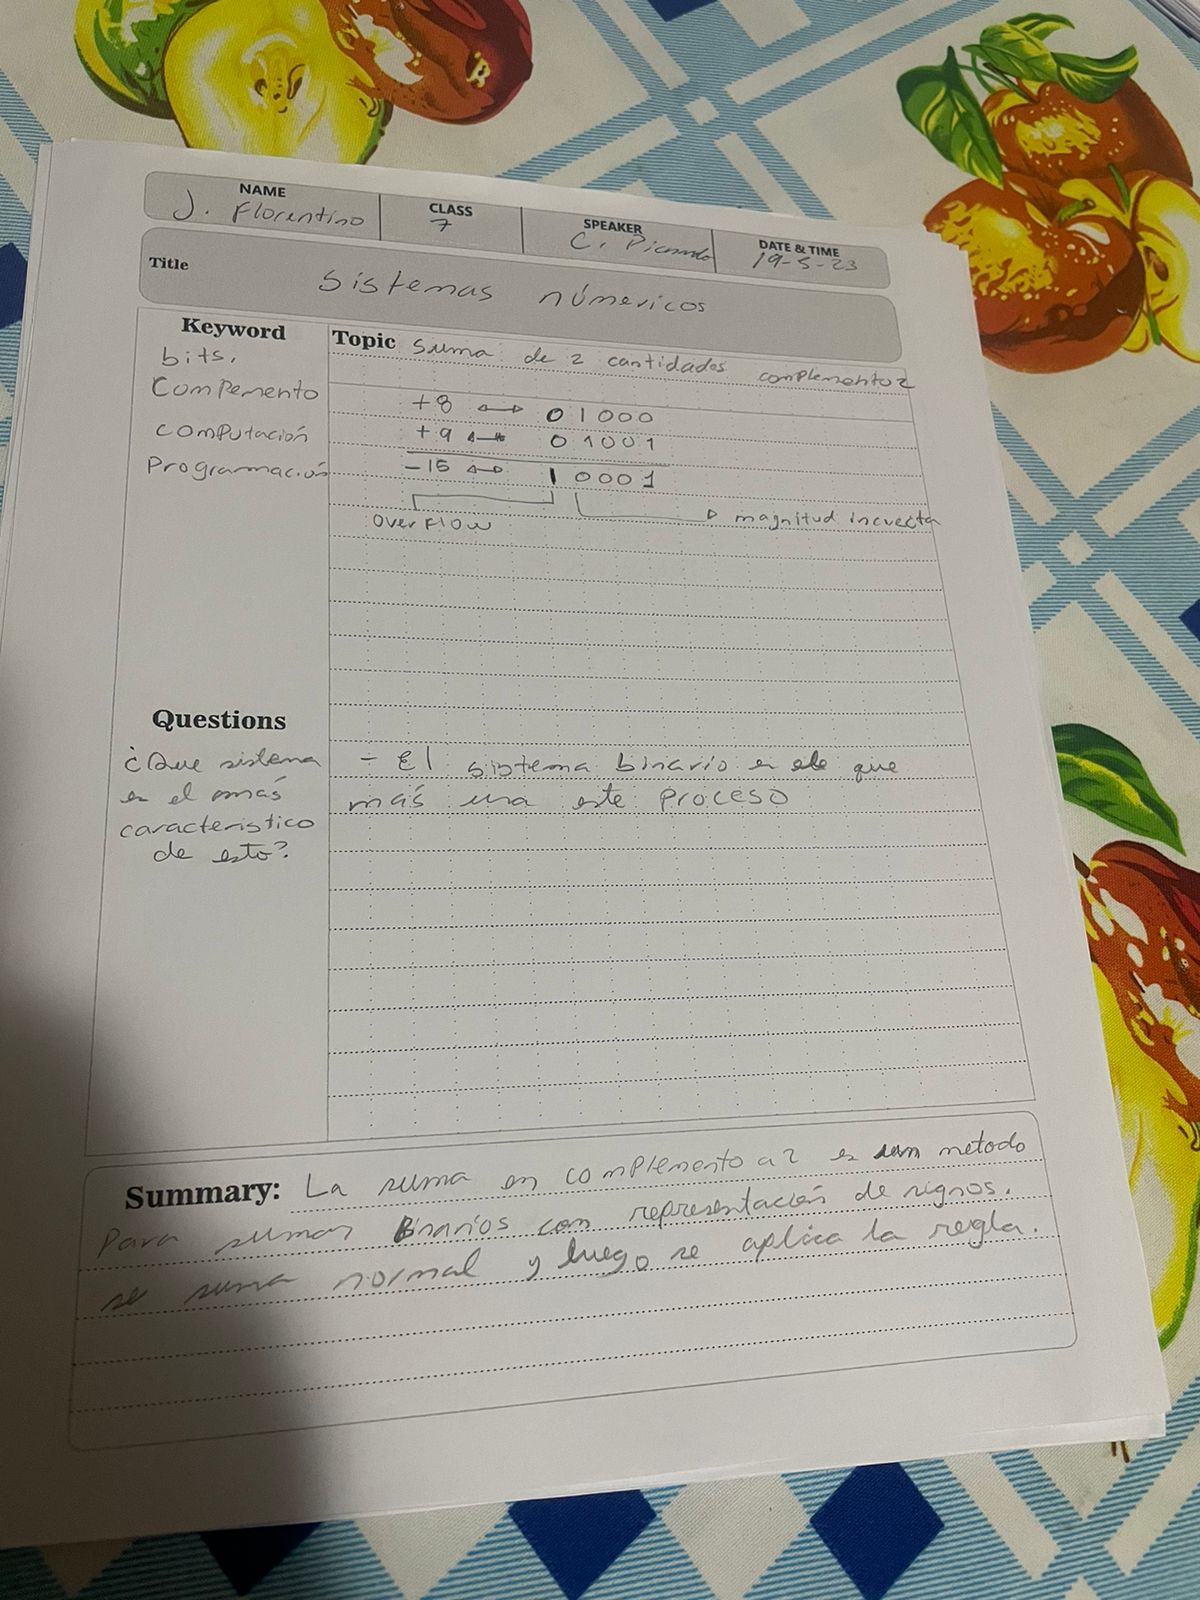 NAME
J. Florentino
CLASS
7
SPEAKER
C. Picardo
DATE & TIME
19-5-23
Title
Sistemas númericos
Keyword
bits,
Compemento
computación
Programación
Topic suma de 2 cantidades complemento 2
+8 ↔ 01000
+9 ↔ 01001
-15 ↔ 10001
overflow
magnitud incuecta
Questions
¿Que sistema
es el más
caracteristico
de esto?
- El sistema binario es el que
más usa este proceso
Summary: La suma en complemento a 2 es un metodo
Para sumar Binarios con representación de signos.
se suma normal y luego se aplica la regla.